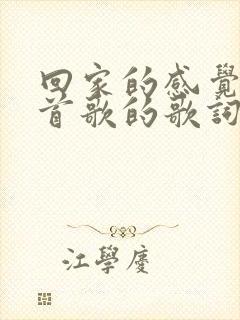 回家的感覺
首歌的歌詞
江學慶